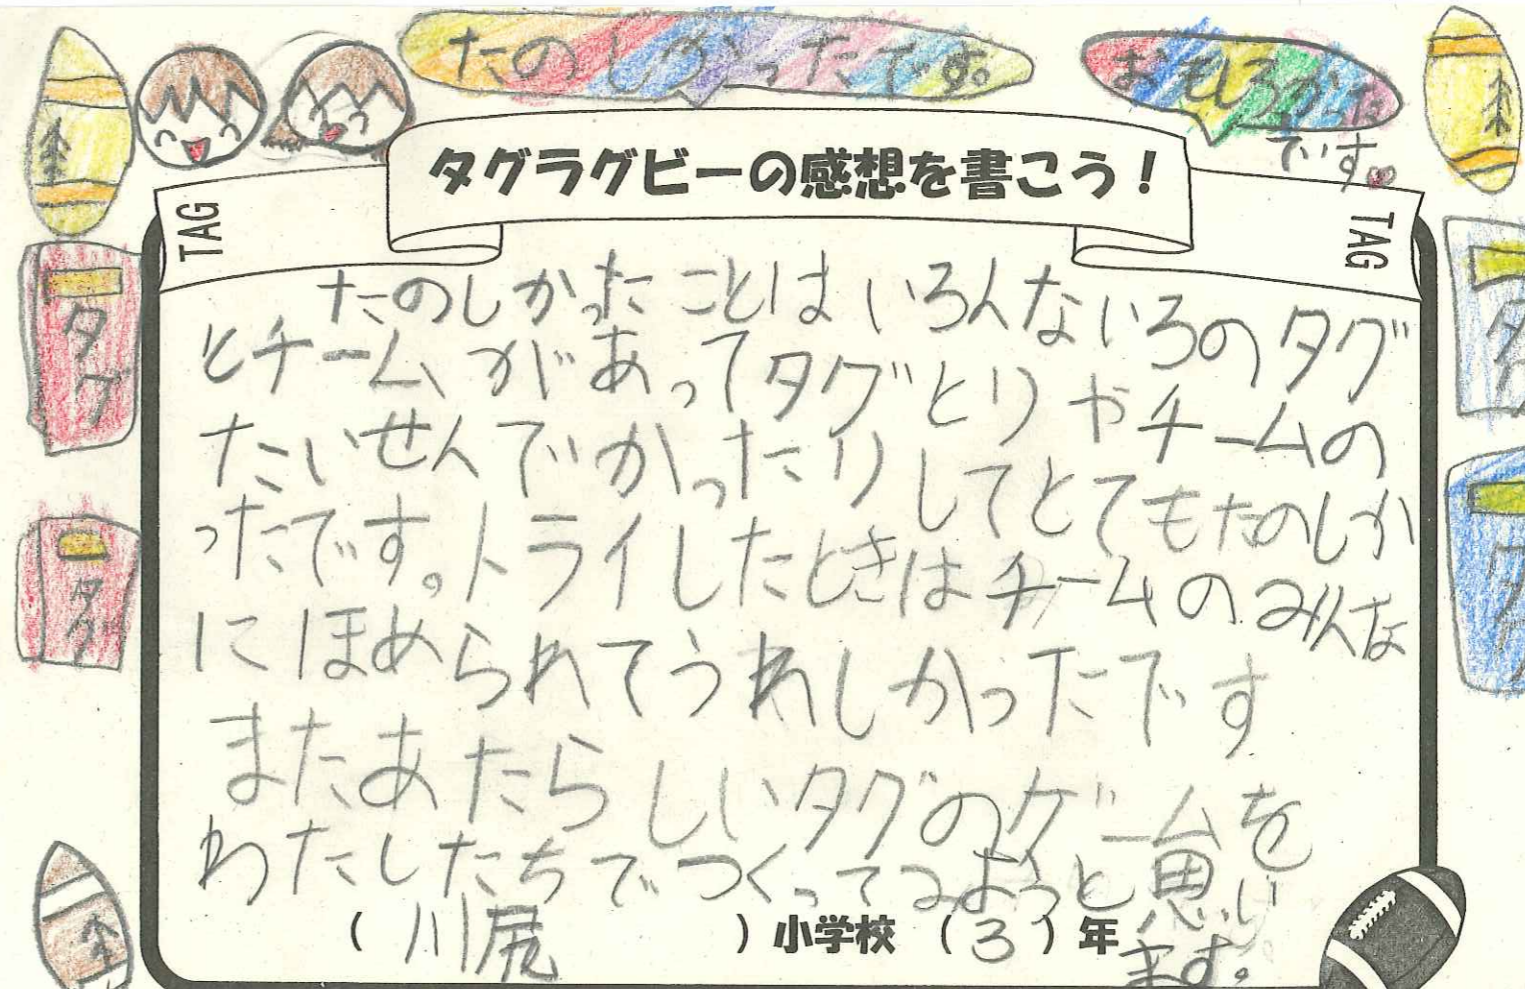 たのしかったです。
おもしろかた
です。
タグラグビーの感想を書こう！
TAG
TAG
たのしかったことはいろんないろのタグ
とチームがあってタグとりやチームの
たいせんでかったりしてとてもたのしか
ったです。トライしたときはチームのみんな
にほめられてうれしかったです
またあたらしいタグのゲームを
わたしたちでつくってみようと思い
ます。
（川尻）小学校（3）年
タグ
タグ
タグ
タグ